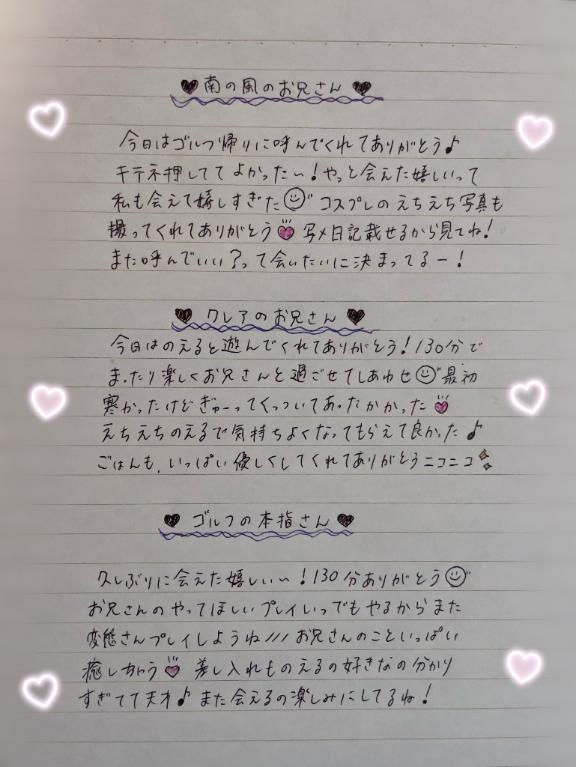 ♥南の風のお兄さん♥
今日はゴルフ帰りに呼んでくれてありがとう♪
キテネ押しててよかったー!やっと会えた嬉しいって
私も会えて嬉しすぎた コスプレのえちえち写真も
撮ってくれてありがとう 写メ日記載せるから見てね!
また呼んでいい?って会いたいに決まってるー!
♥クレアのお兄さん♥
今日はのえると遊んでくれてありがとう!130分で
まったり楽しくお兄さんと過ごせてしあわせ 最初
寒かったけどぎゅーってくっついてあったかかった
えちえちのえるで気持ちよくなってもらえて良かった♪
ごはんも、いっぱい優しくしてくれてありがとうニコニコ
♥ゴルフの本指さん♥
久しぶりに会えた嬉しい〜!130分ありがとう
お兄さんのやってほしいプレイいつでもやるからまた
変態さんプレイしようね/// お兄さんのこといっぱい
癒しちゃう 差し入れものえるの好きなの分かり
すぎてて天才♪また会えるの楽しみにしてるね!